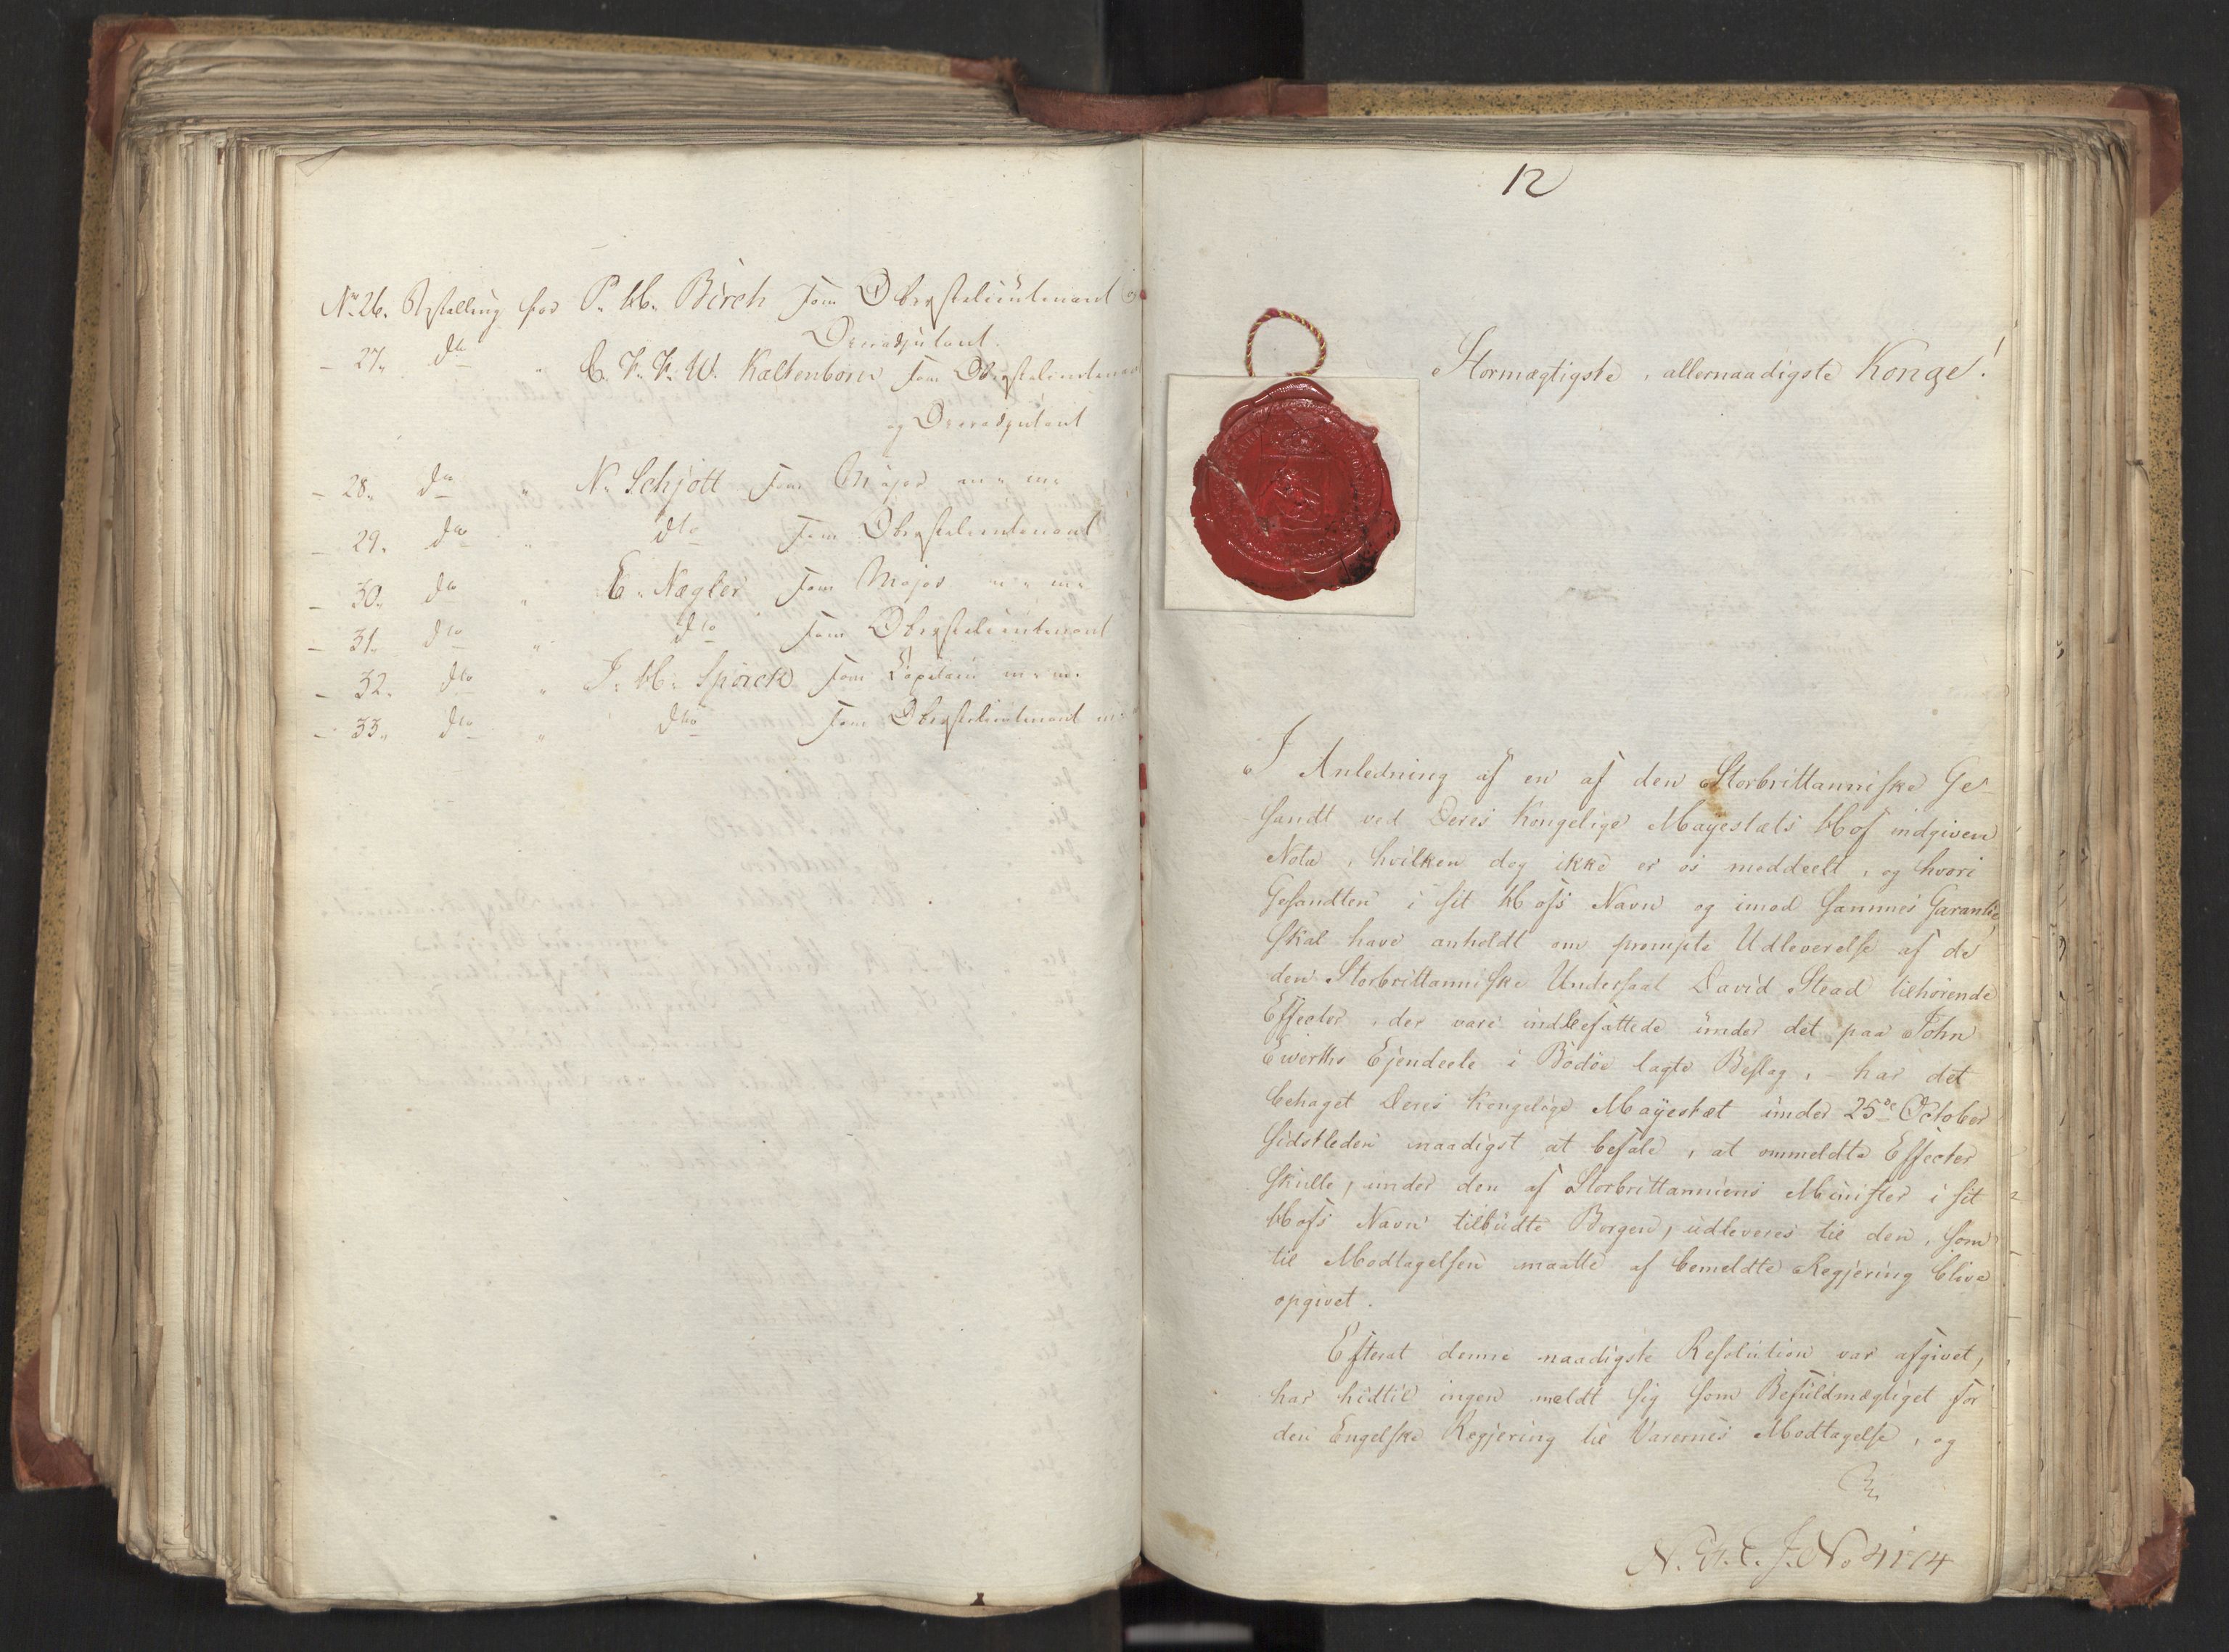 No 26. Bestalling for P. H. Birch som Oberstelieutenant og
Overadjutant.
– 27. dto " C. F. F. W. Kaltenborn som Oberstelieutenant
og Overadjutant
– 28. dto " N. Schjött som Major m. m.
– 29. dto " dto som Oberstelieutenant
– 30. dto " C. Nægler som Major m. m.
– 31. dto " dto som Oberstelieutenant
– 32. dto " J. H. Spörck som Capitain m. m.
– 33. dto " dto som Oberstelieutenant m:
12
Stormægtigste, allernaadigste Konge!
I Anledning af en af den Storbrittanniske Ge-
sandt ved Deres Kongelige Mayestæts Hof indgiven
Nota, hvilken dog ikke er os meddeelt, og hvori
Gesandten i sit Hofs Navn og imod sammes Garantie
skal have anholdt om prompte Udleverelse af de
den Storbrittanniske Undersaat David Stead tilhörende
Effecter, der vare indbefattede under det paa John
Ewerths Ejendeele i Bodöe lagte Beslag, har det
behaget Deres Kongelige Mayestæt under 25de October
sidstleden naadigst at befale, at ommeldte Effecter
skulle, under den af Storbrittanniens Minister i sit
Hofs Navn tilbudte Borgen, udleveres til den, som
til Modtagelsen maatte af bemeldte Regjering blive
opgivet.
Efterat denne naadigste Resolution var afgivet,
har hidtil ingen meldt sig som Befuldmægtiget for
den Engelske Regjering til Varernes Modtagelse, og
N. J. No 4174